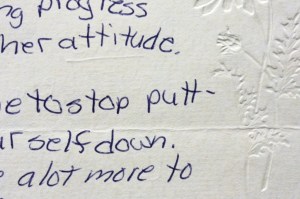 ng progress
her attitude.
e to stop putt-
urself down.
a lot more to